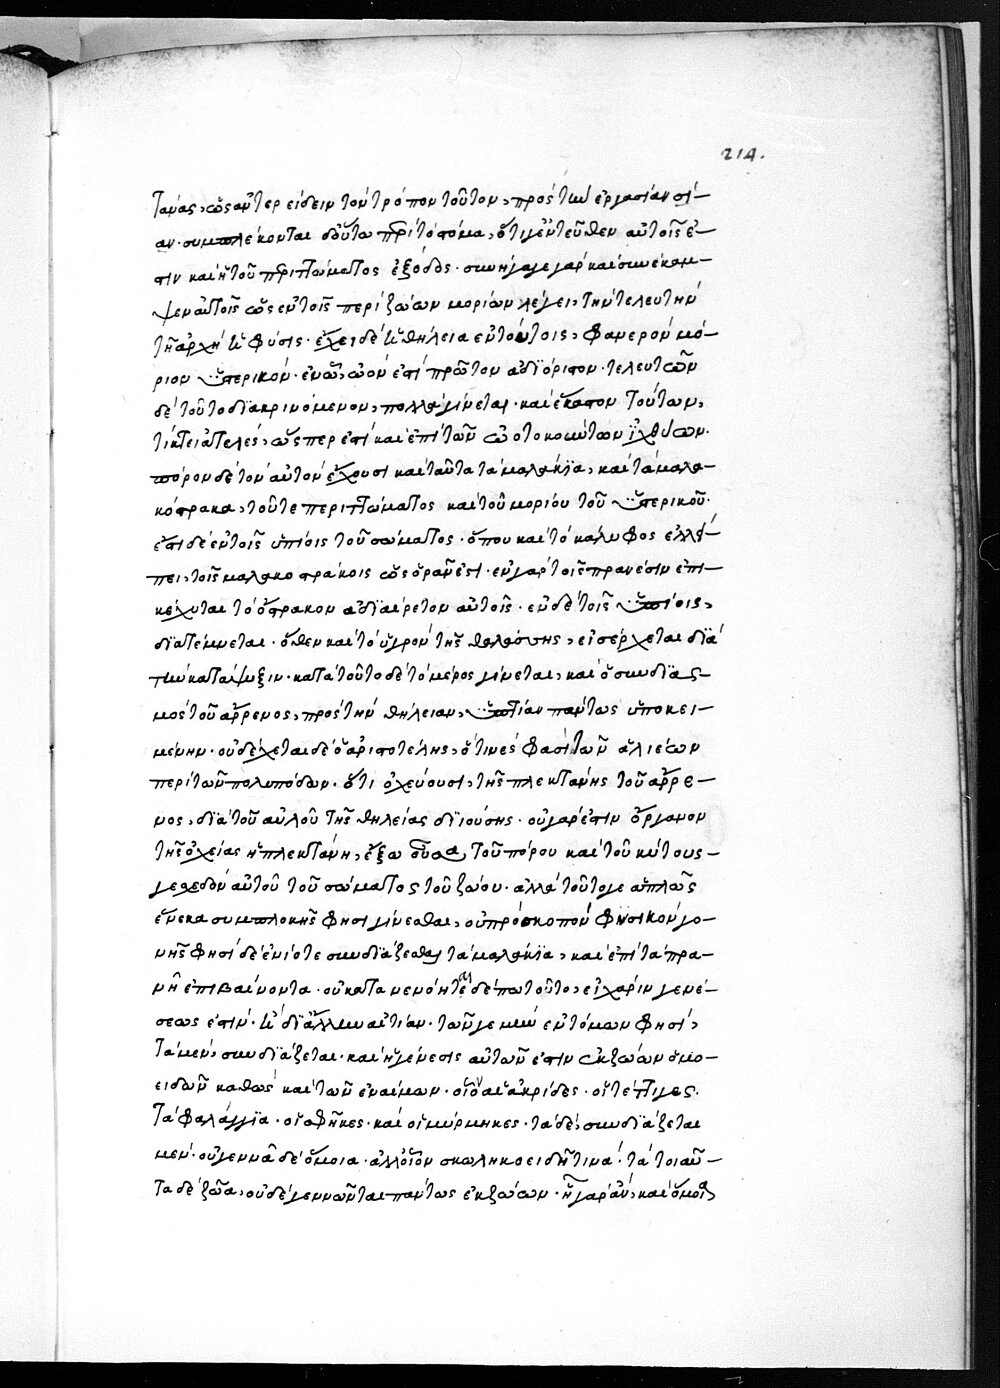 214.
τανας, ὥσπερ εἰδεῖν τὸν τρόπον τοῦτον, πρὸς τὴν ἐργασίαν
αν. συμπλέκονται δ' οὕτω περὶ τὸ στόμα, ὅτι γ' ἐντεῦθεν αὐτοῖς ἐ-
στιν καὶ ἡ τοῦ περιττώματος ἔξοδος. συνήγαγε γὰρ καὶ συνέκαμ-
ψεν αὐτοῖς ὡς ἐν τοῖς περὶ ζώων μορίων λέγει, τὴν τελευτὴν
τῇ ἀρχῇ ἡ φύσις. ἔχει δὲ ἡ θήλεια ἐν τούτοις, φανερὸν μό-
ριον ὑστερικόν. ἐν ᾧ, ὠὸν ἐστὶ πρῶτον ἀδιόριστον. τελευτῶν
δὲ τοῦτο διακρινόμενον, πολλὰ γίνεται. καὶ ἕκαστον τούτων,
τίκτει ἀτελές, ὥσπερ ἐστὶ καὶ ἐπὶ τῶν ὠοτοκούντων ἰχθύων.
πόρον δὲ τὸν αὐτὸν ἔχουσι καὶ ταῦτα τὰ μαλάκια, καὶ τὰ μαλα-
κόστρακα, τοῦ τε περιττώματος καὶ τοῦ μορίου τοῦ ὑστερικοῦ.
ἔστι δὲ ἐν τοῖς ὑπτίοις τοῦ σώματος. ὅπου καὶ τὸ κέλυφος ἐλλεί-
πει, τοῖς μαλακοστράκοις ὡς ὁρᾶν ἐστι. ἐν γὰρ τοῖς πρανέσιν ἐπι-
κέχυται τὸ ὄστρακον ἀδιαίρετον αὐτοῖς. ἐν δὲ τοῖς ὑπτίοις,
διατέμνεται. ὅθεν καὶ τὸ ὑγρὸν τῆς θαλάσσης, εἰσέρχεται διὰ
τὴν κατάψυξιν. κατὰ τοῦτο δὲ τὸ μέρος γίνεται, καὶ ὁ συνδιασ-
μὸς τοῦ ἄρρενος, πρὸς τὴν θήλειαν, ὑπτίαν πάντως ὑποκει-
μένην. οὐ δέχεται δὲ ὁ ἀριστοτέλης, ὅ τινές φασὶ τῶν ἁλιέων
περὶ τῶν πολυπόδων. ὅτι ὀχεύουσι, τῆς πλεκτάνης τοῦ ἄρρε-
νος, διὰ τοῦ αὐλοῦ τῆς θηλείας διιούσης. οὐ γάρ ἐστιν ὄργανον
τῆς ὀχείας ἡ πλεκτάνη, ἔξω οὖσα τοῦ πόρου καὶ τοῦ κύτους-
σχεδὸν αὐτοῦ τοῦ σώματος τοῦ ζώου. ἀλλὰ τοῦτό γε ἁπλῶς
ἕνεκα συμπλοκῆς φησὶ γίνεσθαι, οὐ πρὸς σκοπὸν φυσικὸν γο-
νῆς φησὶ δὲ ἐνίοτε συνδιάζεσθαι τὰ μαλάκια, καὶ ἐπὶ τὰ πρα-
νῆ ἐπιβαίνοντα. οὐ κατανενόηται δέ πω τοῦτο, εἰ χάριν γενέ-
σεώς ἐστιν. ἢ δι' ἄλλην αἰτίαν. τῶν γε μὴν ἐντόμων φησί,
τὰ μὲν, συνδιάζεται. καὶ ἡ γένεσις αὐτῶν ἐστιν ἐκ ζώων ὁμο-
ειδῶν καθὼς καὶ τῶν ἐναίμων. οἷον αἱ ἀκρίδες. οἱ τέττιγες.
τὰ φαλάγγια. οἱ σφῆκες. καὶ οἱ μύρμηκες. τὰ δὲ, συνδιάζεται
μέν. οὐ γεννᾶ δὲ ὅμοια. ἀλλ' οἷον σκωληκοειδῆ τινά. τὰ τοιαῦ-
τα δὲ ζῶα, οὐδὲ γεννῶνται πάντως ἐκ ζώων. ἦ γὰρ ἂν, καὶ ὅμοια